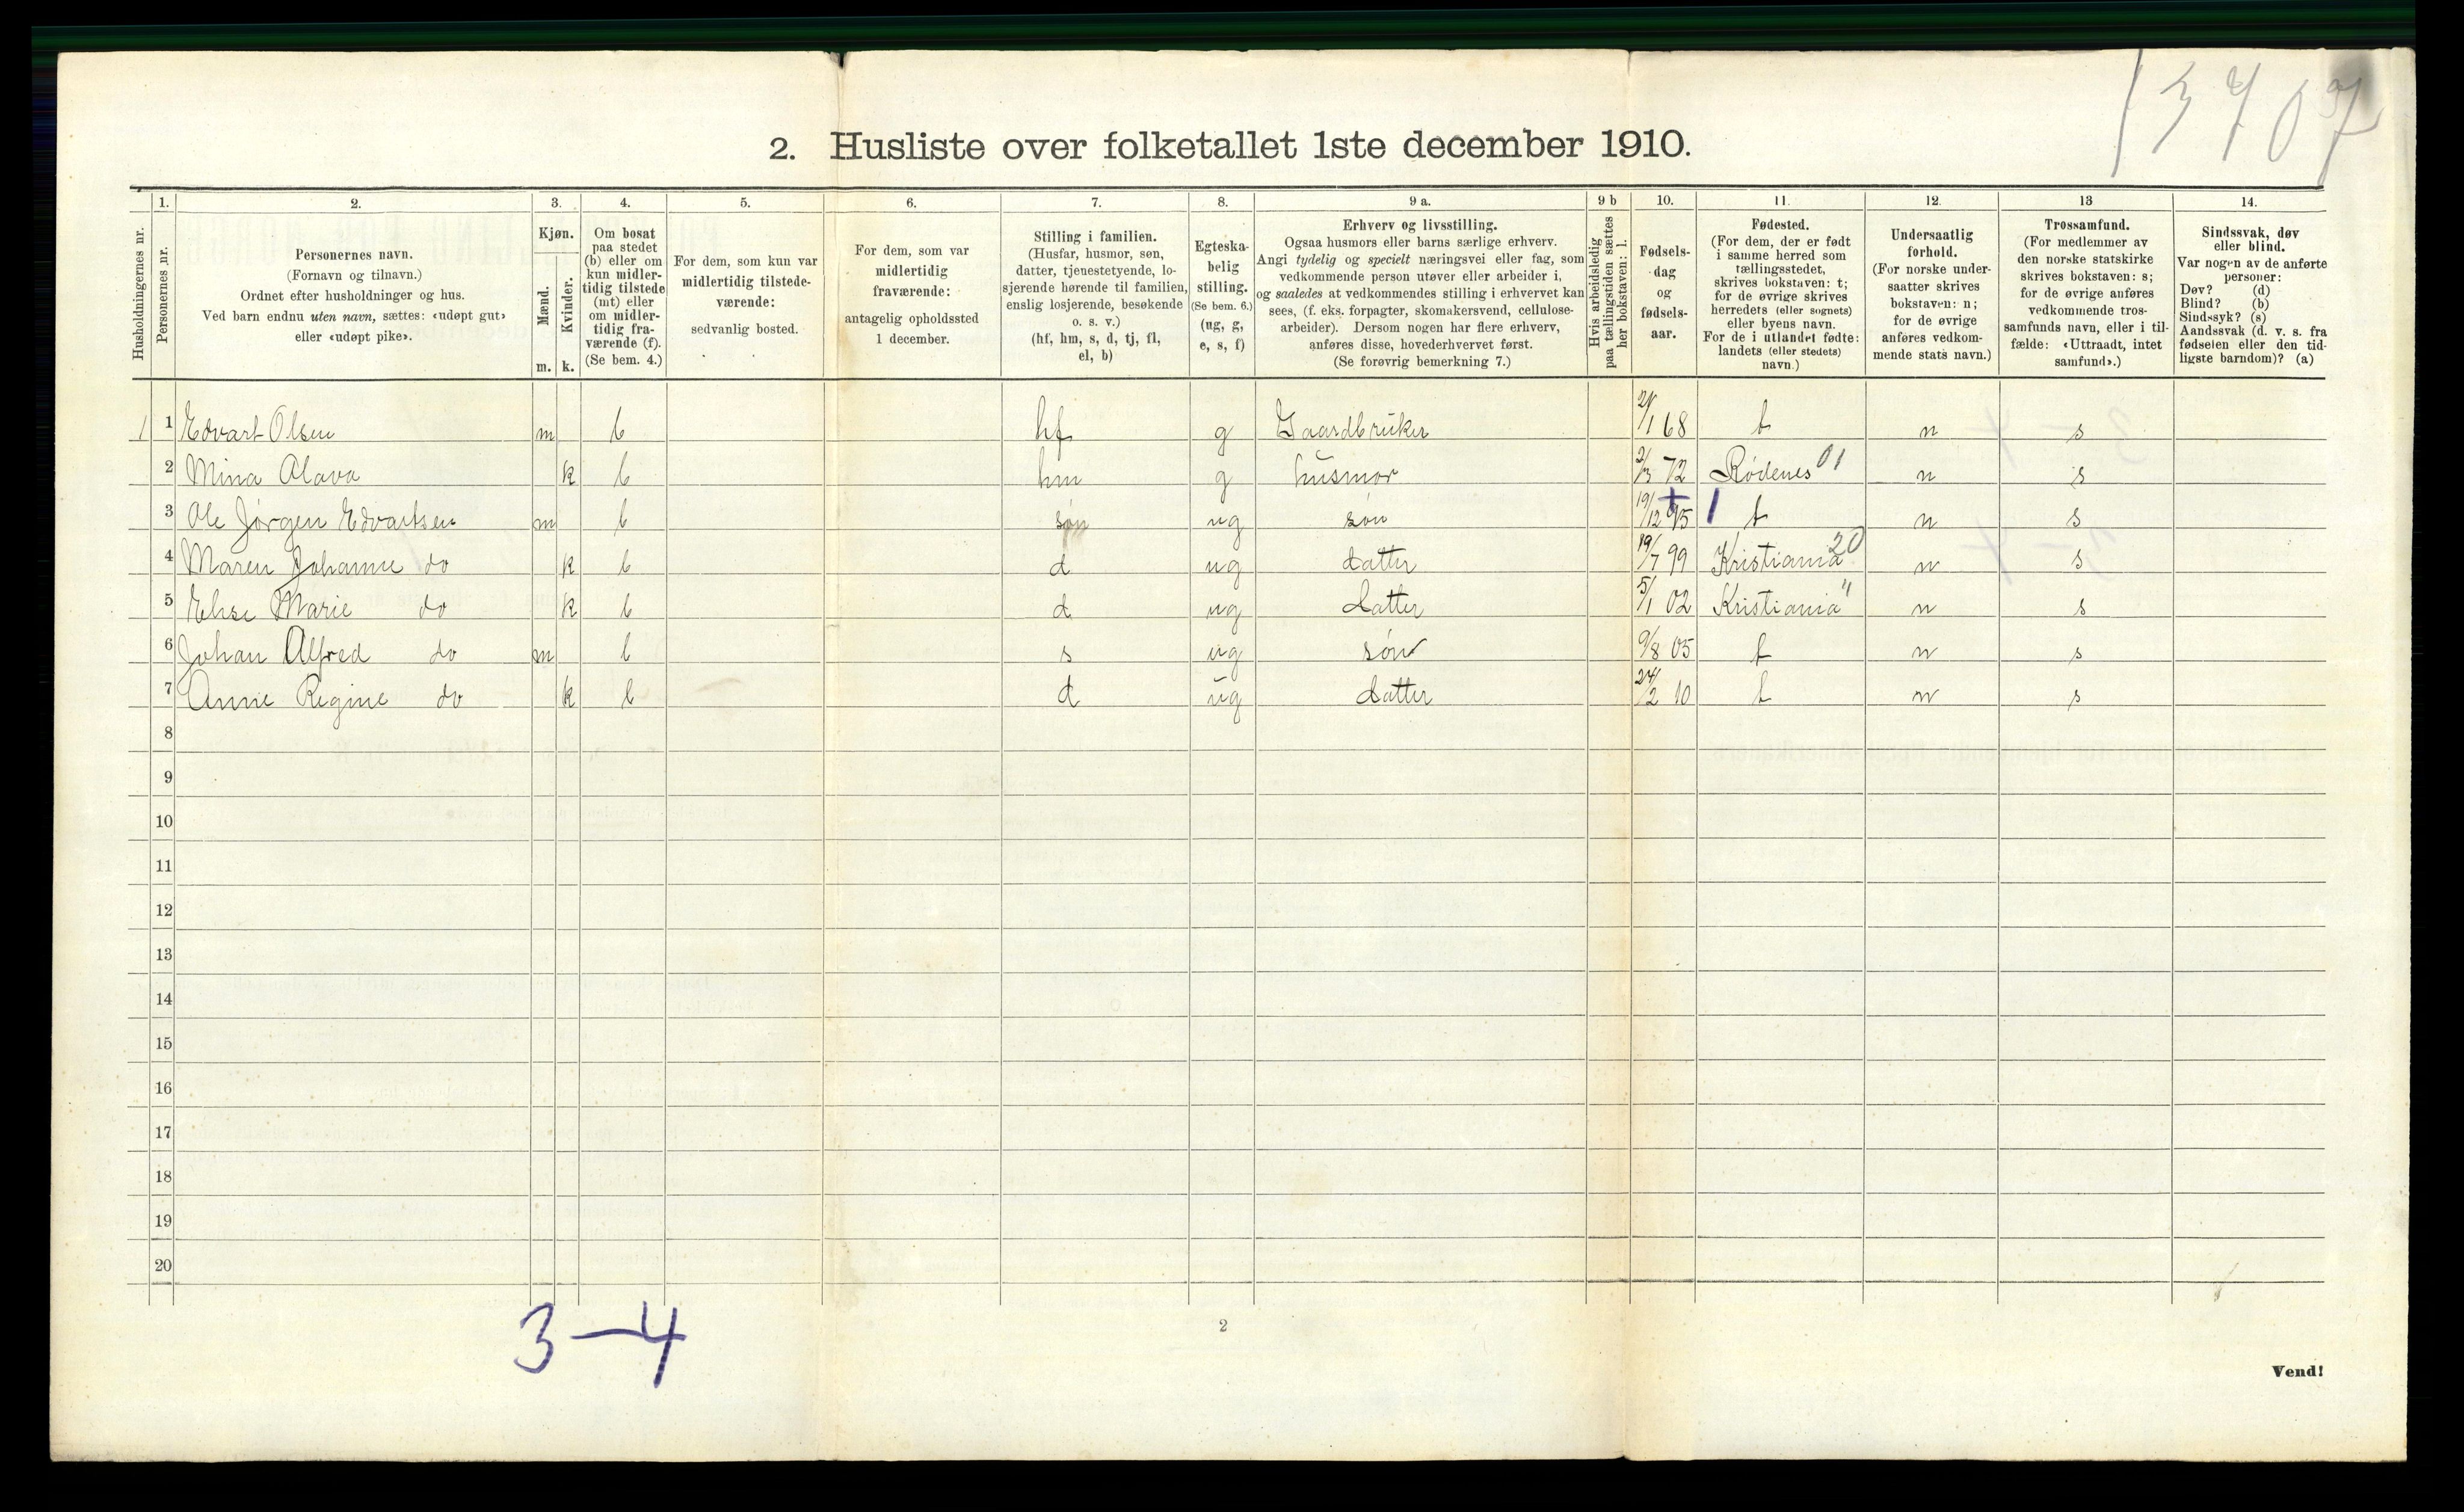 2. Husliste over folketallet 1ste december 1910.
1. 2. 3. 4. 5. 6. 7. 8. 9 a. 9 b 10. 11. 12. 13 14.
Husholdningernes nr.
Personernes nr.
Personernes navn.
(Fornavn og tilnavn.)
Ordnet efter husholdninger og hus.
Ved barn endnu uten navn, sættes: «udøpt gut»
eller «udøpt pike».
Kjøn.
Mænd.
Kvinder.
m. k.
Om bosat
paa stedet
(b) eller om
kun midler-
tidig tilstede
(mt) eller
om midler-
tidig fra-
værende (f).
(Se bem. 4.)
For dem, som kun var
midlertidig tilstede-
værende:
sedvanlig bosted.
For dem, som var
midlertidig
fraværende:
antagelig opholdssted
1 december.
Stilling i familien.
(Husfar, husmor, søn,
datter, tjenestetyende, lo-
sjerende hørende til familien,
enslig losjerende, besøkende
o. s. v.)
(hf, hm, s, d, tj, fl,
el, b)
Egteska-
belig
stilling.
(Se bem. 6.)
(ug, g,
e, s, f)
Erhverv og livsstilling.
Ogsaa husmors eller barns særlige erhverv.
Angi tydelig og specielt næringsvei eller fag, som
vedkommende person utøver eller arbeider i,
og saaledes at vedkommendes stilling i erhvervet kan
sees, (f. eks. forpagter, skomakersvend, cellulose-
arbeider). Dersom nogen har flere erhverv,
anføres disse, hovederhvervet først.
(Se forøvrig bemerkning 7.)
Hvis arbeidsledig
paa tællingstiden sættes
her bokstaven: l.
Fødsels-
dag
og
fødsels-
aar.
Fødested.
(For dem, der er født
i samme herred som
tællingsstedet,
skrives bokstaven: t;
for de øvrige skrives
herredets (eller sognets)
eller byens navn.
For de i utlandet fødte:
landets (eller stedets)
navn.)
Undersaatlig
forhold.
(For norske under-
saatter skrives
bokstaven: n;
for de øvrige
anføres vedkom-
mende stats navn.)
Trossamfund.
(For medlemmer av
den norske statskirke
skrives bokstaven: s;
for de øvrige anføres
vedkommende tros-
samfunds navn, eller i til-
fælde: «Uttraadt, intet
samfund».)
Sindssvak, døv
eller blind.
Var nogen av de anførte
personer:
Døv? (d)
Blind? (b)
Sindssyk? (s)
Aandssvak (d. v. s. fra
fødselen eller den tid-
ligste barndom)? (a)
1 1 Edvart Olsen m b hf g Gaardbruker 21/1 68 t n s
2 Mina Olava k b hm g husmor 2/3 72 Rødenes 01 n s
3 Ole Jørgen Edvartsen m b søn ug søn 19/12 95 t n s
4 Maren Johanne do k b d ug datter 19/7 99 Kristiania 20 n s
5 Elise Marie do k b d ug datter 5/1 02 Kristiania " n s
6 Johan Alfred do m b s ug søn 9/8 05 t n s
7 Anne Regine do k b d ug datter 24/2 10 t n s
8
9
10
11
12
13
14
15
16
17
18
19
20
3-4
2
Vend!